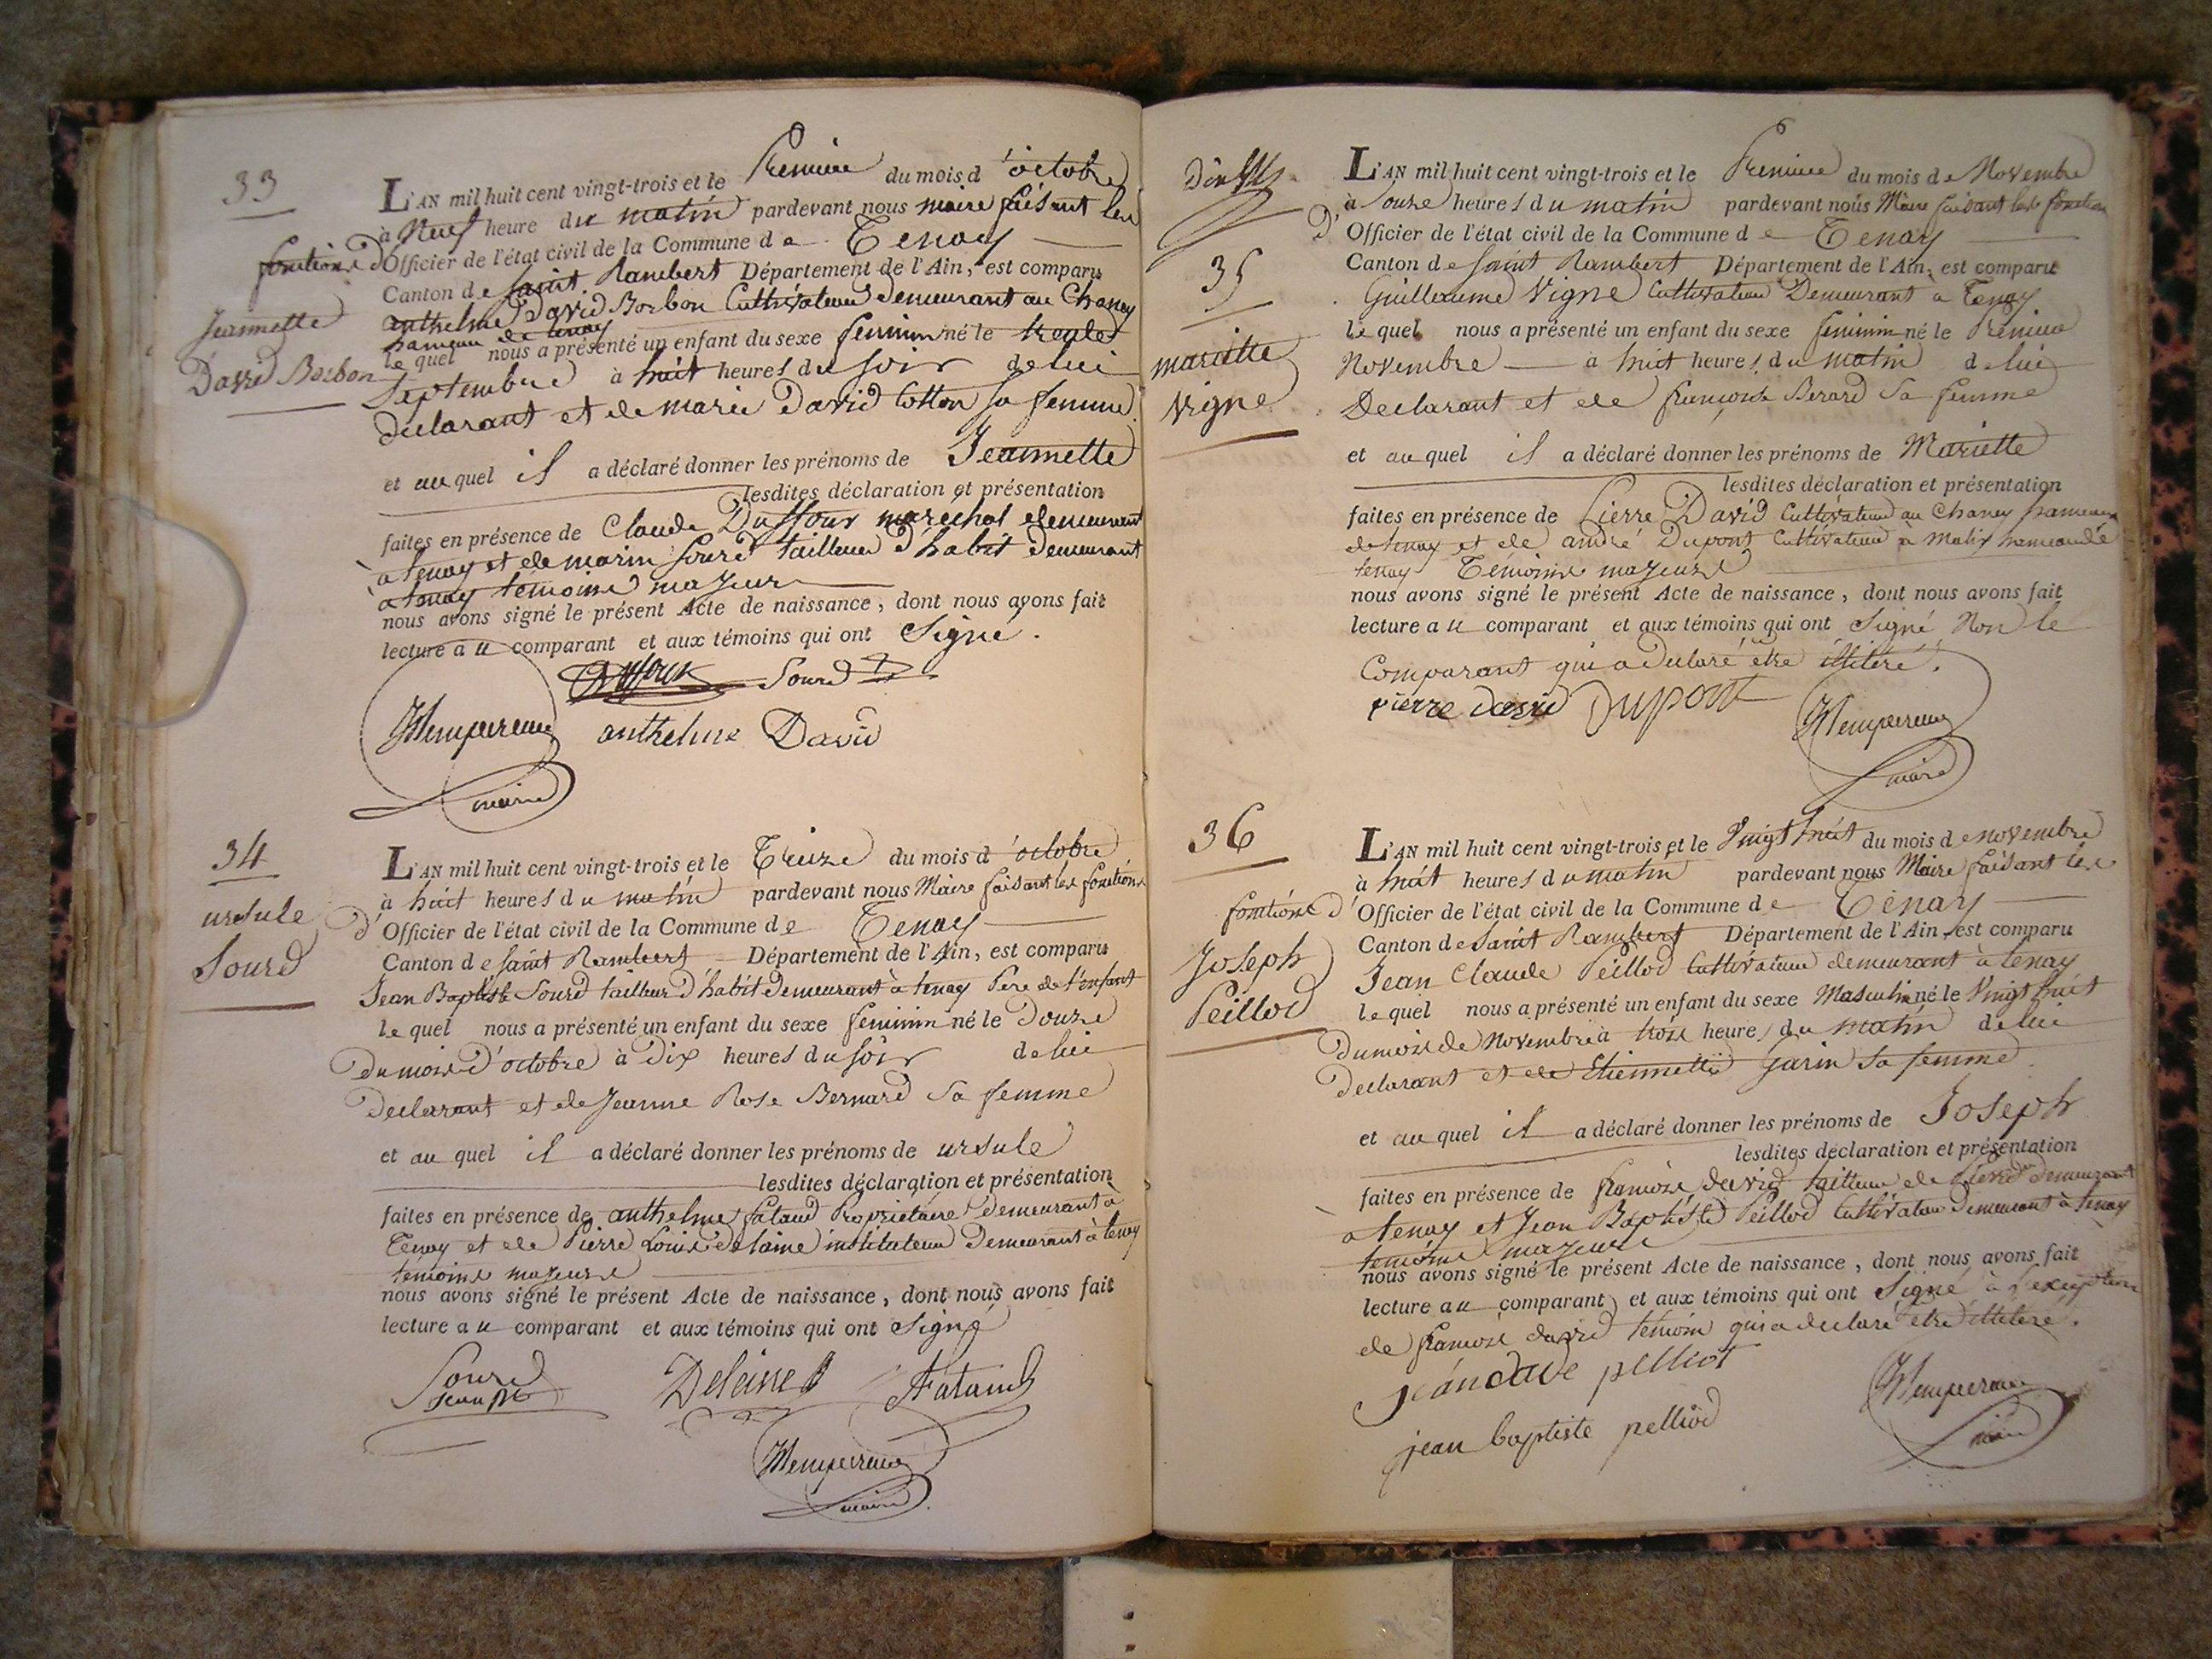 33
L'AN mil huit cent vingt-trois et le Premier du mois d'octobre
à Neuf heure du matin pardevant nous maire faisant les
fonctions d'Officier de l'état civil de la Commune de Tenay
Canton de Saint Rambert Département de l'Ain, est comparu
anthelme David Borbon Cultivateur demeurant au Chaney
hameau de tenay
Jeannette
David Borbon
lequel nous a présenté un enfant du sexe feminin né le trente
Septembre à huit heures du soir de lui
declarant et de marie David Cotton sa femme
et auquel il a déclaré donner les prénoms de Jeannette
lesdites déclaration et présentation
faites en présence de Claude Duffour marechal demeurant
à tenay et de marin Sourd tailleur d'habit demeurant
à tenay temoins majeurs
nous avons signé le présent Acte de naissance, dont nous avons fait
lecture au comparant et aux témoins qui ont Signé.
Sourd
anthelme David
maire
34
ursule
Sourd
L'AN mil huit cent vingt-trois et le Treize du mois d'octobre
à huit heures du matin pardevant nous Maire faisant les fonctions
d'Officier de l'état civil de la Commune de Tenay
Canton de Saint Rambert Département de l'Ain, est comparu
Jean Baptiste Sourd tailleur d'habit demeurant à tenay Pere de l'enfant
lequel nous a présenté un enfant du sexe feminin né le Douze
du mois d'octobre à Dix heures du soir de lui
Declarant et de Jeanne Rose Bernard Sa femme
et auquel il a déclaré donner les prénoms de ursule
lesdites déclaration et présentation
faites en présence de anthelme fataud Propriétaire demeurant à
Tenay et de Pierre Louis Delaine instituteur Demeurant à tenay
témoins majeurs
nous avons signé le présent Acte de naissance, dont nous avons fait
lecture au comparant et aux témoins qui ont Signé
Sourd
Jean Bte
fataud
maire
35
mariette
vigne
L'AN mil huit cent vingt-trois et le Premier du mois de Novembre
à onze heures du matin pardevant nous Maire faisant les fonction
d'Officier de l'état civil de la Commune de Tenay
Canton de Saint Rambert Département de l'Ain, est comparu
Guillaume Vigne Cultivateur Demeurant à Tenay
lequel nous a présenté un enfant du sexe feminin né le Premier
Novembre à huit heures du matin de lui
Declarant et de françoise Berard Sa femme
et auquel il a déclaré donner les prénoms de Mariette
lesdites déclaration et présentation
faites en présence de Pierre David Cultivateur au Chaney hameau
de tenay et de andré Dupont Cultivateur à Malix hameau de
tenay Temoins majeurs
nous avons signé le présent Acte de naissance, dont nous avons fait
lecture au comparant et aux témoins qui ont Signé Non le
Comparant qui a declaré être illiteré.
pierre david Dupont
maire
36
Joseph
Peillod
L'AN mil huit cent vingt-trois et le Vingt huit du mois de novembre
à huit heures du matin pardevant nous Maire faisant les
fonctions d'Officier de l'état civil de la Commune de Tenay
Canton de Saint Rambert Département de l'Ain, est comparu
Jean Claude Peillod Cultivateur demeurant à tenay
lequel nous a présenté un enfant du sexe Masculin né le Vingt huit
du mois de Novembre à trois heure du matin de lui
Declarant et de Etiennette Garin Sa femme
et auquel il a déclaré donner les prénoms de Joseph
lesdites déclaration et présentation
faites en présence de françois david tailleur de Pierre demeurant
à tenay et Jean Baptiste Peillod Cultivateur Demeurant à tenay
temoins majeurs
nous avons signé le présent Acte de naissance, dont nous avons fait
lecture au comparant et aux témoins qui ont Signé à l'exception
de françois david témoin qui a declaré être illiteré.
jean baptiste pelliod